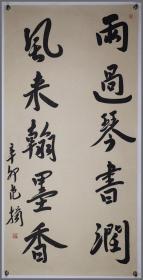 雨過琴書潤
風来翰墨香
辛卯